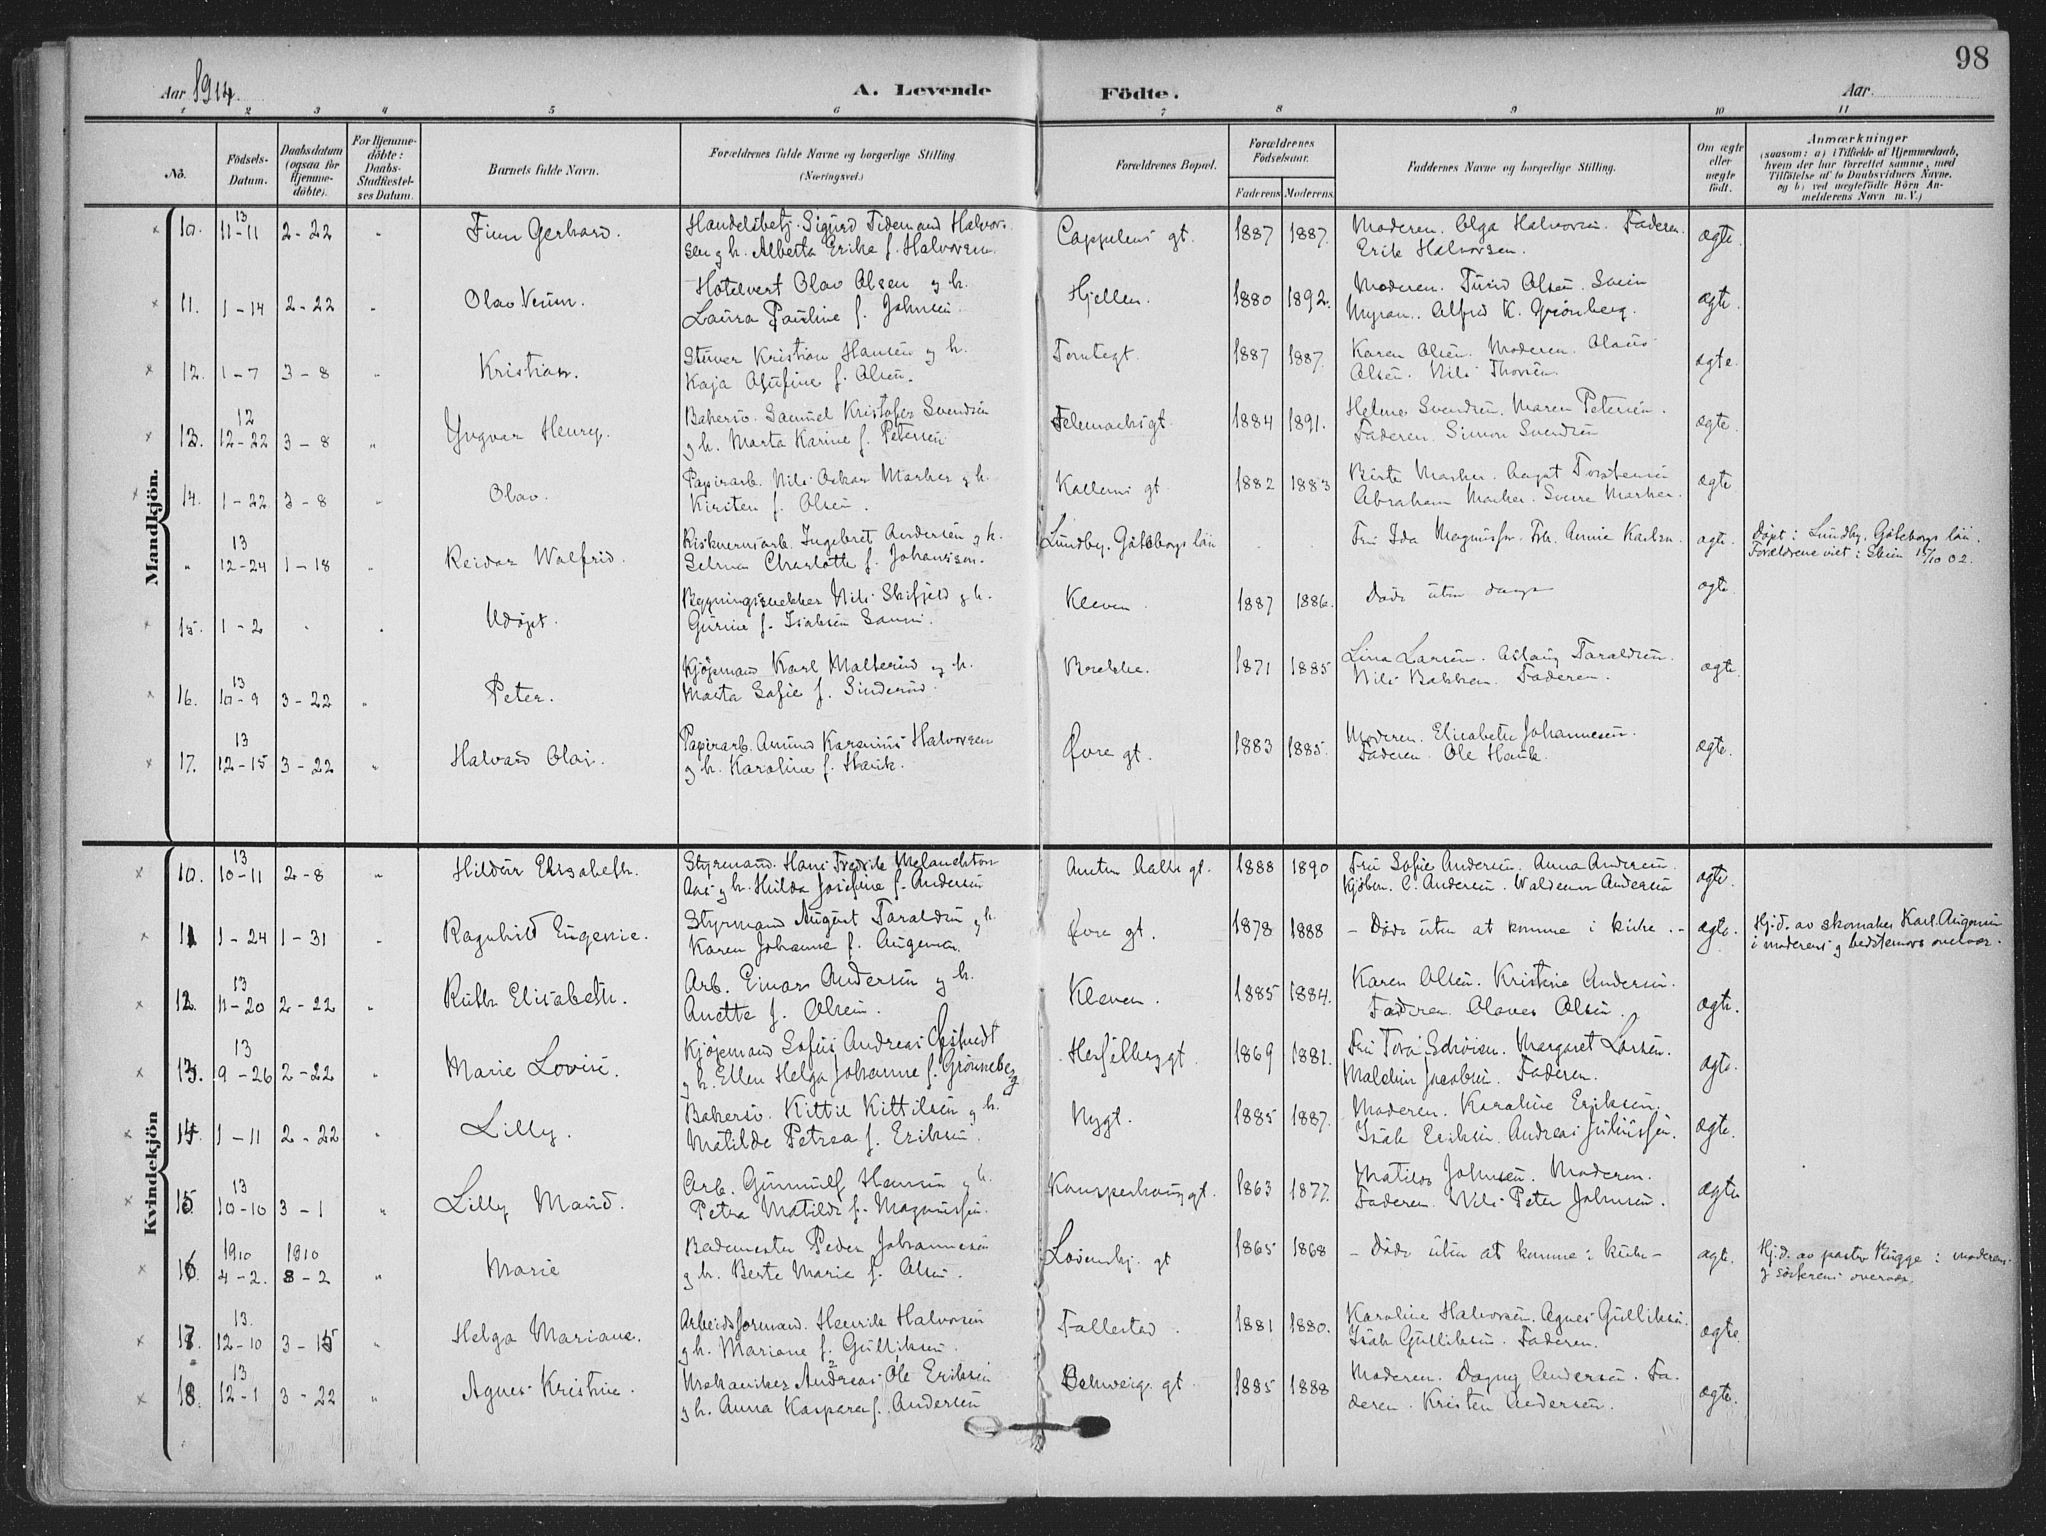 98
Aar 1914.
A. Levende
Födte.
Aar
1 2 3 4 5 6 7 8 9 10 11
No.
Födsels-Datum.
Daabsdatum (ogsaa for Hjemmedöbte).
For Hjemmedöbte: Daabs-Stadfæstelses Datum.
Barnets fulde Navn.
Forældrenes fulde Navne og borgerlige Stilling (Næringsvei.)
Forældrenes Bopæl.
Forældrenes Födselsaar.
Faderens Moderens
Faddernes Navne og borgerlige Stilling.
Om ægte eller uægte födt.
Anmærkninger
(saasom: a) i Tilfælde af Hjemmedaab, hvem der har forrettet samme, med Tilföielse af to Daabsvidners Navne, og b) ved uægtefödte Börn Anmelderens Navn m. V.)
Mandkjön.
10. 13 11-11 2-22 " Finn Gerhard. Handelsbetj. Sigurd Tidemand Halvor- Cappelens gt. 1887 1887. Moderen. Olga Halvorsen. Faderen. ægte.
sen g h. Alberta Erika f. Halvorsen. Erik Halvorsen.
11. 1-14 2-22 " Olav Veum. Hotelvert Olav Olsen g h. Hjellen. 1880 1892. Moderen. Turid Olsen. Svein ægte.
Laura Pauline f. Johnsen. Myran. Alfred K. Grönberg.
12. 1-7 3-8 " Kristian. Stuver Kristian Hansen g h. Tomtegt 1887 1887. Karen Olsen. Moderen. Olaus ægte.
Kaja Josefine f. Olsen. Olsen. Nils Thorsen.
13. 12 12-22 3-8 " Yngvar Henry. Bakersv. Samuel Kristofer Svendsen Telemarksgt. 1884 1891. Helene Svendsen. Maren Petersen. ægte.
g h. Marta Karine f. Petersen Faderen. Simon Svendsen
14. 1-22 3-8 " Olav. Papirarb. Nils Oskar Marker g h. Kallems gt. 1882 1883 Berte Marker. Aagot Torstensen ægte
Kirsten f. Olsen. Abraham Marker. Sverre Marker.
" 13 12-24 1-18 " Reidar Walfrid. Ingebret Andersen g h. Lundby. Göteborgs län Fru Ida Magnusson. Frk. Annie Karlson. ægte. Döpt i Lundby, Göteborgs län.
Selma Charlotte f. Johansson. Forældrene viet i Skien 15/10 02.
15. 1-2 " " Udöpt. Bygningssnekker Nils Skifjeld g h. Kleven. 1887 1886. Döde uten daap ægte.
Gurine f. Isaksen
16. 13 10-9 3-22 " Peter. Kjöpmand Karl Malterud g h. Brekke. 1871 1885 Lina Larsen. Aslaug Taraldsen. ægte.
Marta Sofie f. Sinderud. Nils Bakken. Faderen.
17. 13 12-15 3-22 " Halvard Olai. Papirarb. Amund Karenius Halvorsen Övre gt. 1883 1885. Moderen. Elisabeth Johannesen. ægte.
g h. Karoline f. Hauk. Faderen. Ole Hauk.
Kvindekjön
10. 13 10-11 2-8 " Hildur Elisabeth. Styrmand. Hans Fredrik Melanchton 1888 1890 Fru Sofie Andersen. Anna Andersen. ægte.
Aas g h. Hilda Josefine f. Andersen Kjöbm. C. Andersen. Waldemar Andersen
11 1-24 1-31 " Ragnhild Eugenie. Styrmand August Taraldsen g h. Övre gt. 1878 1888 – Döde uten at komme i kirke. – ægte. Hj.d. av skomaker Karl Augonsen
Karen Johanne f. Augonsen. i moderens g bedstemors overvær.
12. 13 11-20 2-22 " Ruth Elisabeth. Arb. Einar Andersen g h. Kleven. 1885 1884. Karen Olsen. Kristine Andersen. ægte.
Anette f. Olsen. Faderen. Olaves Olsen.
13. 13 9-26 2-22 " Marie Lovise. Kjöpmand Sofus Andreas Opstvedt Hesselberggt. 1869 1881. Fru Tora Schröien. Margaret Larsen. ægte.
g h. Ellen Helga Johanne f. Grönneberg Malchin Jacobsen. Faderen.
14. 1-11 2-22 " Lilly. Bakersv. Kittil Kittilsen g h. Nygt. 1885 1887. Moderen. Karoline Eriksen. ægte.
Matilde Petrea f. Eriksen. Isak Eriksen. Andreas Juliussen.
15 13 10-10 3-1 " Lilly Maud. Arb. Gunnulf Hansen g h. 1863 1877. Matilde Johnsen. Moderen. ægte
Petra Matilde f. Magnussen. Faderen. Nils Peter Johnsen.
16. 1910 4-2. 1910 8-2 " Marie Bademester Peder Johannesen gt 1865 1868 – Döde uten at komme i kirke – ægte. Hj.d. av pastor Rugge i moderens
g h. Berte Marie f. Olsen. g sösterens overvær.
17. 13. 12-10 3-15 " Helga Mariane. Arbeidsformand. Henrik Halvorsen Follestad. 1881 1880. Karoline Halvorsen. Agnes Gulliksen. ægte.
g h. Mariane f. Gulliksen. Isak Gulliksen. Faderen.
18. 13 12-1 3-22 " Agnes Kristine. Mekaniker Andreas Ole Eriksen Schweige gt. 1885 1888 Moderen. Dagny Andersen. Fa- ægte.
g h. Anna Kaspara f. Andersen deren. Kristen Andersen.